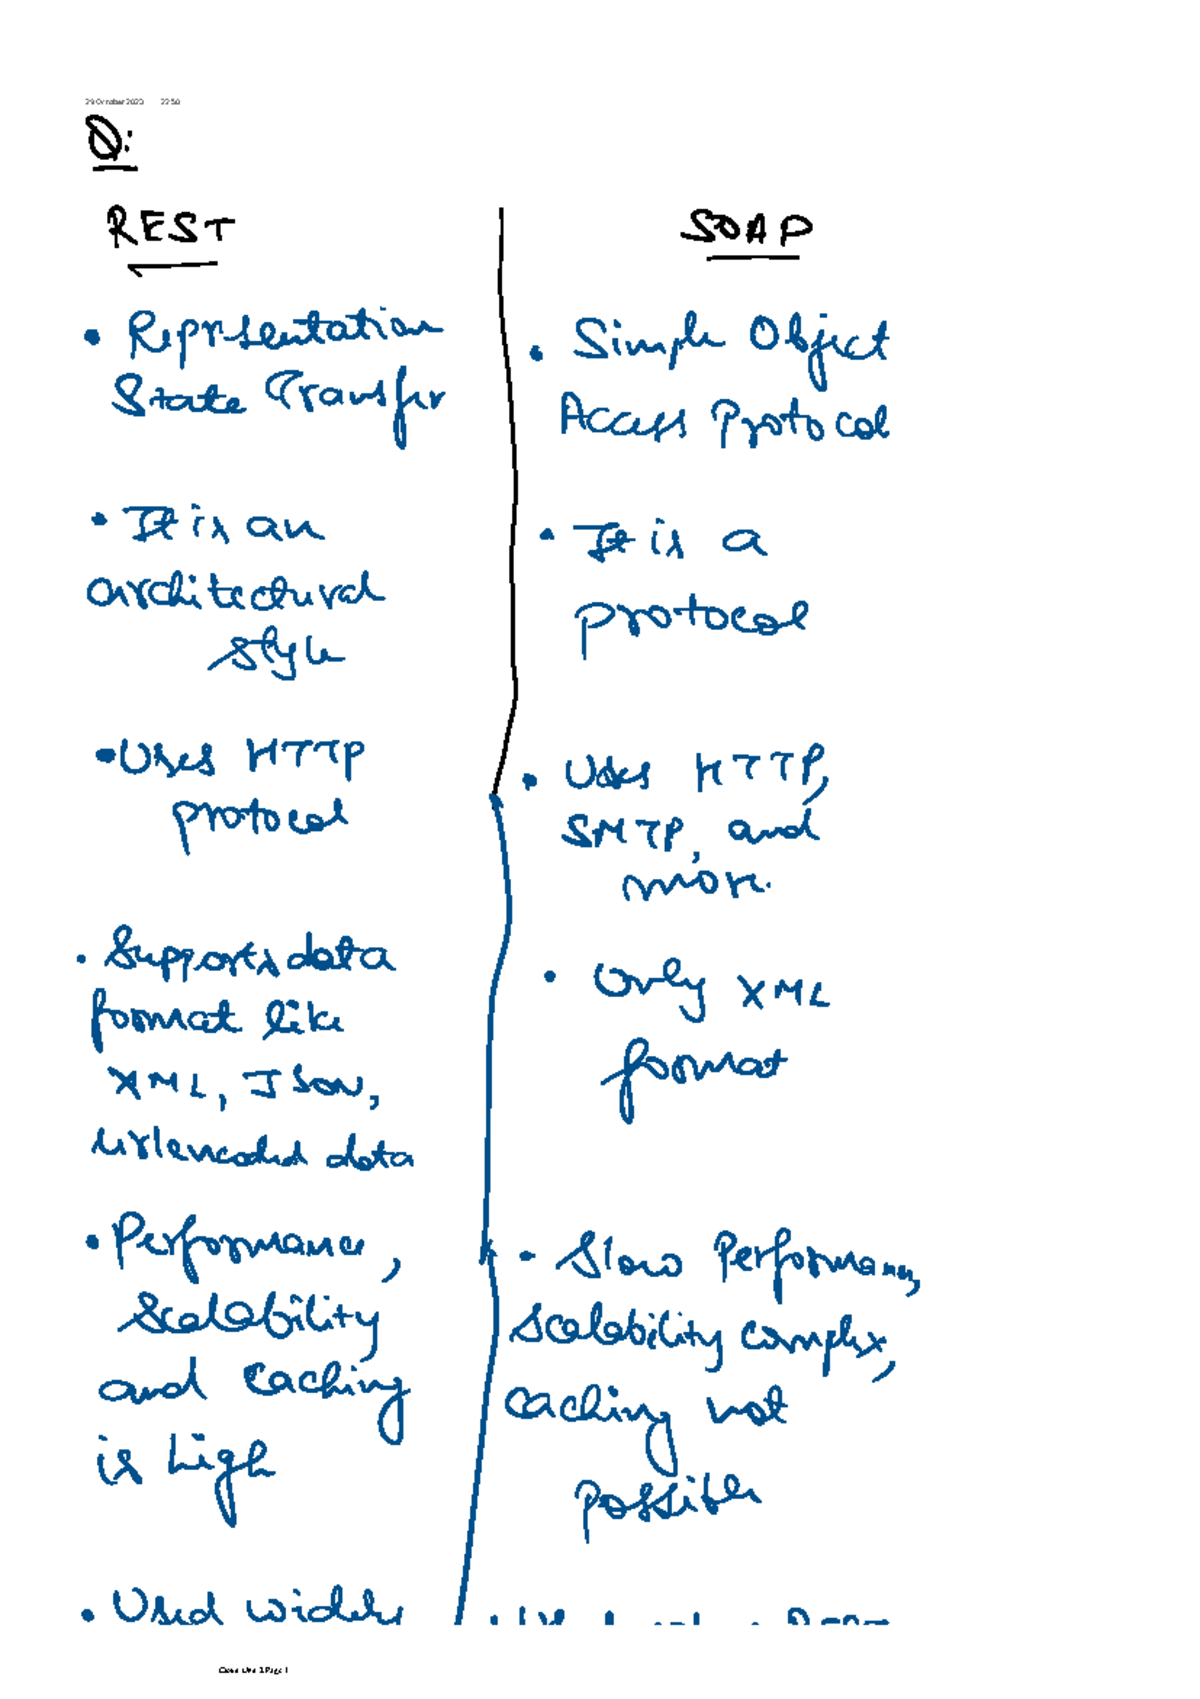 29 October 2023 22:50
Q:
REST
• Representation
State Transfer
• It is an
architectural
style
• Uses HTTP
protocol
• Supports data
format like
XML, Json,
urlencoded data
• Performance,
scalability
and caching
is high
• Used widely
SOAP
• Simple Object
Access Protocol
• It is a
protocol
• Uses HTTP,
SMTP, and
more.
• Only XML
format
• Slow Performance,
scalability complex,
caching not
possible
Page 1